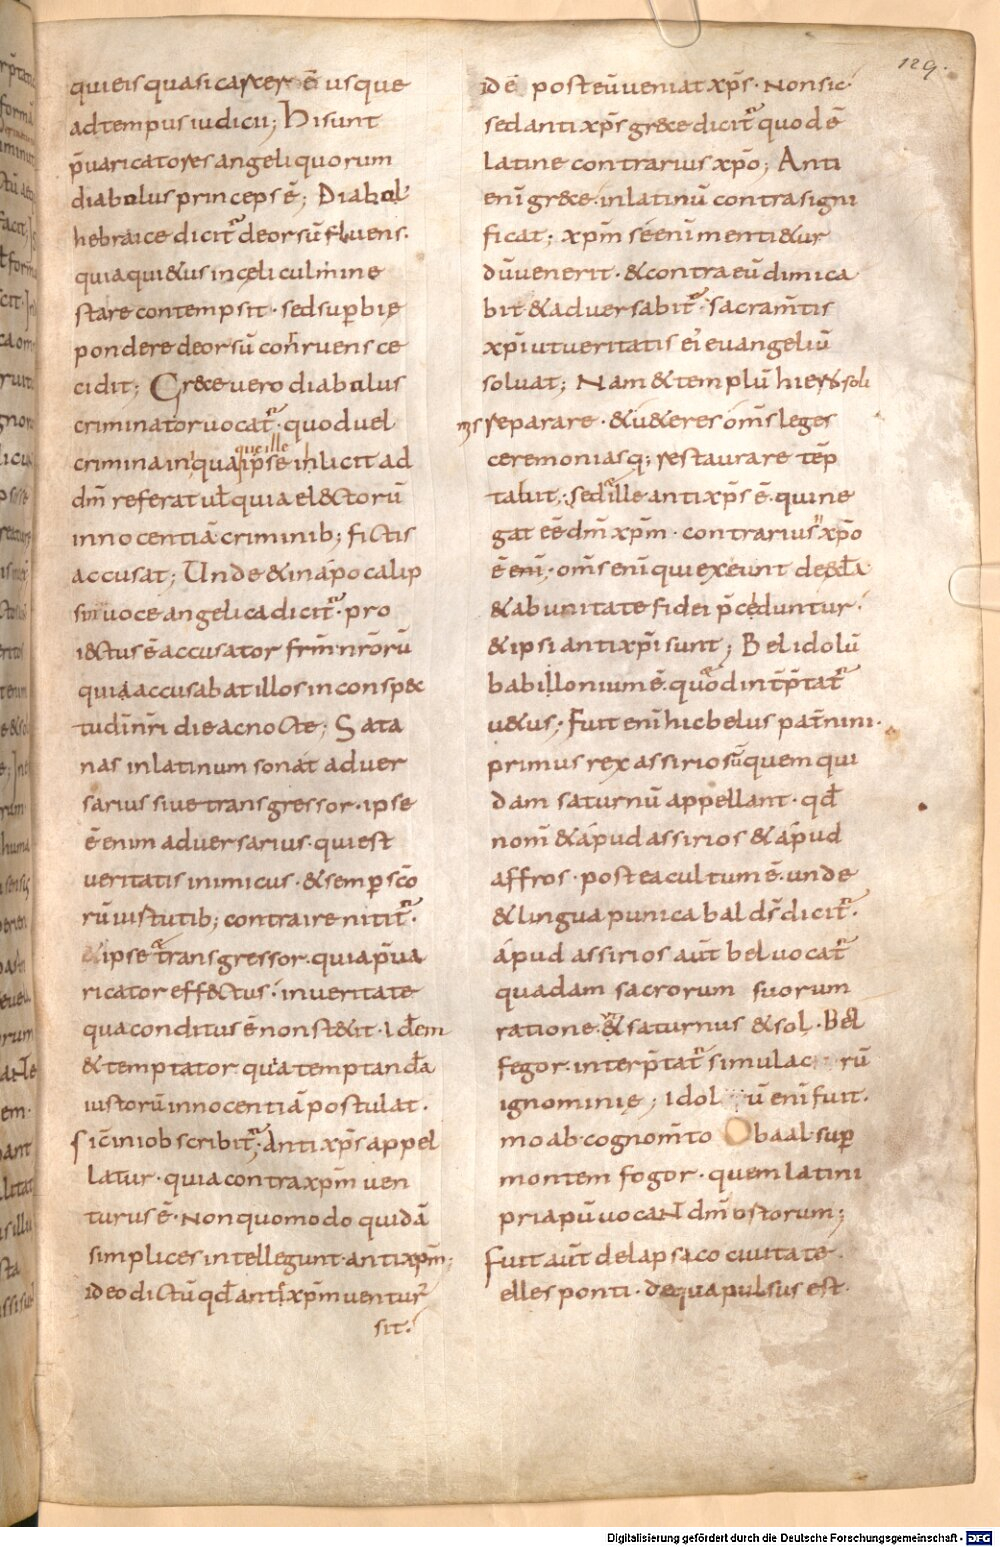 129.
qui eis quasi carcer ē usque
ad tempus iudicii; Hi sunt
p̄uaricatores angeli quorum
diabolus princeps ē; Diabol'
hebraice dicit᷑ deorsū fluens.
quia quiętus in cęli culmine
stare contempsit · sed supbię
pondere deorsū corruens ce
cidit; Grece uero diabolus
criminator uocat᷑ · quod uel
crimina in qua ipse inlicit ad
que ille
dm̄ referat ul̄ quia electorū
innocentiā criminib; fictis
accusat; Unde & in apocalip
sin uoce angelica dicit᷑ · pro
iectus ē accusator frm̄ nr̄orū
quia accusabat illos in conspec
tu dī nr̄i die ac nocte; Sata
nas in latinum sonat aduer
sarius siue transgressor · ipse
ē enim aduersarius · qui est
ueritatis inimicus · & semp sc̄o
rū uirtutib; contraire nitit᷑ ·
& ipse transgressor · quia p̄ua
ricator effectus · in ueritate
qua conditus ē non stetit · Idem
& temptator quia temptandā
iustorū innocentiā postulat ·
sic̄ in iob scribit᷑ · Antixp̄s appel
latur · quia contra xp̄m uen
turus ē · Non quomodo quidā
simplices intellegunt · antixp̄m;
ideo dictū qd̄ anti xp̄m uentur᷑
sit.
id ē post eū ueniat xp̄s · Non sic ·
sed antixp̄s grece dicit᷑ quod ē
latine contrarius xp̄o; Anti
enī grece · in latinū contra signi
ficat; xp̄m se enī mentietur
dū uenerit · & contra eū dimica
bit & aduersabit᷑ · sacram̄tis
xp̄i ut ueritatis ei euangeliū
soluat; Nam & templū hierosoli
mis reparare · & ueteres om̄s leges
ceremoniasq; restaurare tēp
tabit; sed ille antixp̄s ē · qui ne
gat eē dm̄ xp̄m · contrarius xp̄o
ē enī · om̄s enī qui exeunt de eccl̄a
& ab unitate fidei p̄ceduntur ·
& ipsi antixp̄i sunt; Bel idolū
babillonium ē · quod int̄p̄tat᷑
uetus; Fuit enī hic belus pat̄ nini ·
primus rex assiriorū quem qui
dam saturnū appellant · qd̄
nom̄ & apud assirios & apud
affros · postea cultum ē · unde
& lingua punica bal ds̄ dicit᷑ ·
apud assirios aūt bel uocat᷑
quadam sacrorum suorum
ratione · & saturnus & sol · Bel
fegor · interp̄tat᷑ simulac rū
ignominię; Idol ū enī fuit ·
moab · cognom̄to baal · sup
montem fogor · quem latini
priapū uocaNt dm̄ ostorum;
Fuit aūt de lapsaco ciuitate ·
elles ponti · de qua pulsus est ·
Digitalisierung gefördert durch die Deutsche Forschungsgemeinschaft - DFG